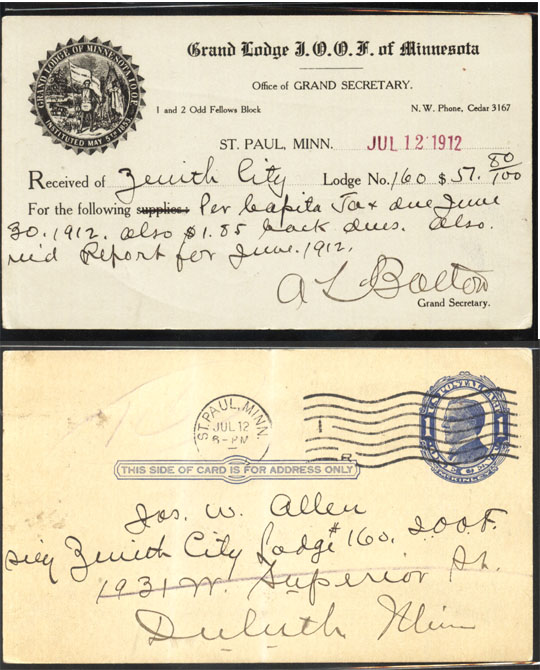 GRAND LODGE OF MINNESOTA I.O.O.F.
INSTITUTED MAY 5TH 1853.
Grand Lodge I.O.O.F. of Minnesota
Office of GRAND SECRETARY.
1 and 2 Odd Fellows Block N. W. Phone, Cedar 3167
ST. PAUL, MINN. JUL 12 1912
Received of Zenith City Lodge No. 160 $ 57. 80/100
For the following supplies: Per Capita Tax due June
30. 1912. also $1.85 back dues. Also.
rec'd Report for June. 1912.
A L Bolton
Grand Secretary.
ST. PAUL, MINN.
JUL 12
6-PM
1
U.S. POSTAL CARD
1 1
McKINLEY
THIS SIDE OF CARD IS FOR ADDRESS ONLY
Jos. W. Allen
Secy Zenith City Lodge #160. I.O.O.F.
1931 W. Superior St.
Duluth Minn